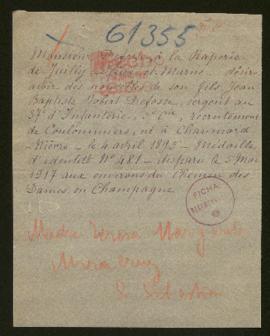 61355
Monsieur à la Râperie
de Juilly Seine et Marne désire
avoir des nouvelles de son fils Jean
Baptiste Robert Defosse, sergent au
37e d'Infanterie, 5e Cie, recrutement
de Coulommiers, né à
Nièvre - le 4 avril 1895 - Médaille
d'identité No 481 - disparu le 5 Mai
1917 aux environs du Chemin des
Dames en Champagne
FICHA
Madre Teresa
Miracruz
S. Sebastian